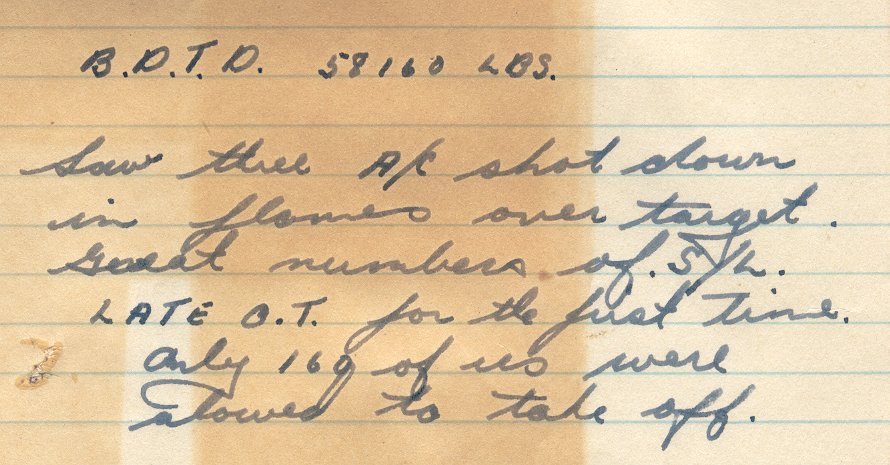 B.D.T.D. 58160 LBS.
Saw three A/C shot down
in flames over target.
Great numbers of. S/L.
LATE O.T. for the first time.
Only 160 of us were
alowed to take off.